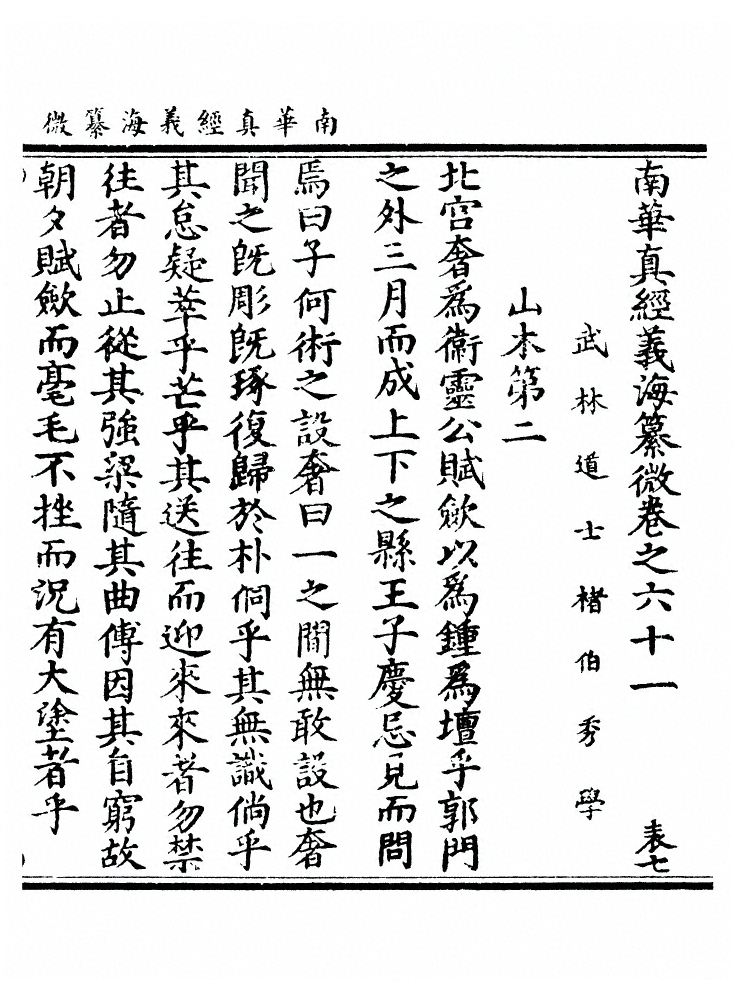 南華真經義海纂微
南華真經義海纂微卷之六十一 表七
武林道士褚伯秀學
山木第二
北宫奢爲衞靈公賦斂以爲鍾爲壇乎郭門
之外三月而成上下之縣王子慶忌見而問
焉曰子何術之設奢曰一之閒無敢設也奢
聞之旣彫旣琢復歸於朴侗乎其無識倘乎
其怠疑萃乎芒乎其送往而迎來來者勿禁
往者勿止從其強梁隨其曲傅因其自窮故
朝夕賦斂而毫毛不挫而況有大塗者乎